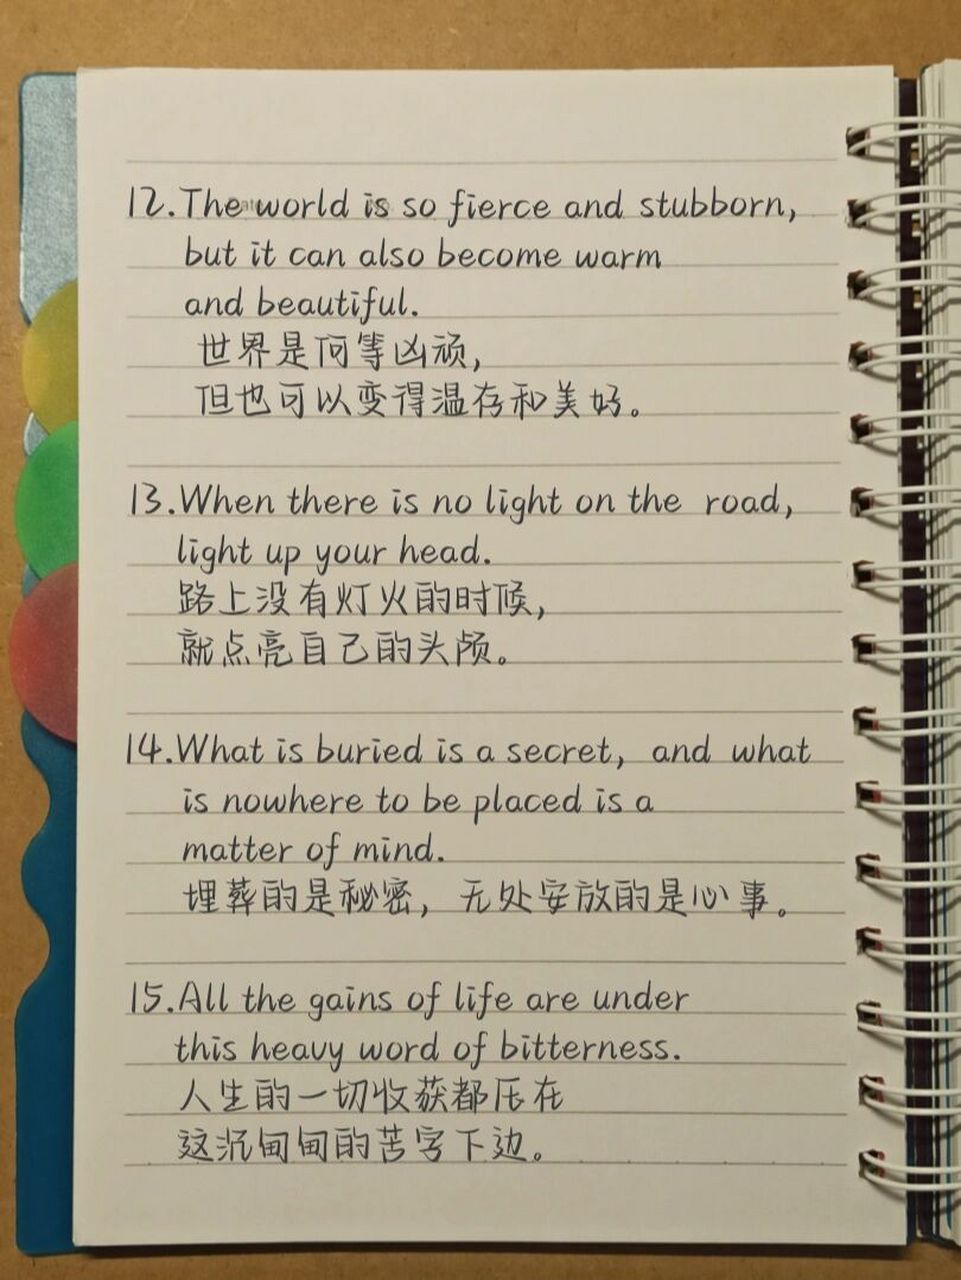 12. The world is so fierce and stubborn,
but it can also become warm
and beautiful.
世界是何等凶顽，
但也可以变得温存和美好。
13. When there is no light on the road,
light up your head.
路上没有灯火的时候，
就点亮自己的头颅。
14. What is buried is a secret, and what
is nowhere to be placed is a
matter of mind.
埋葬的是秘密，无处安放的是心事。
15. All the gains of life are under
this heavy word of bitterness.
人生的一切收获都压在
这沉甸甸的苦字下边。